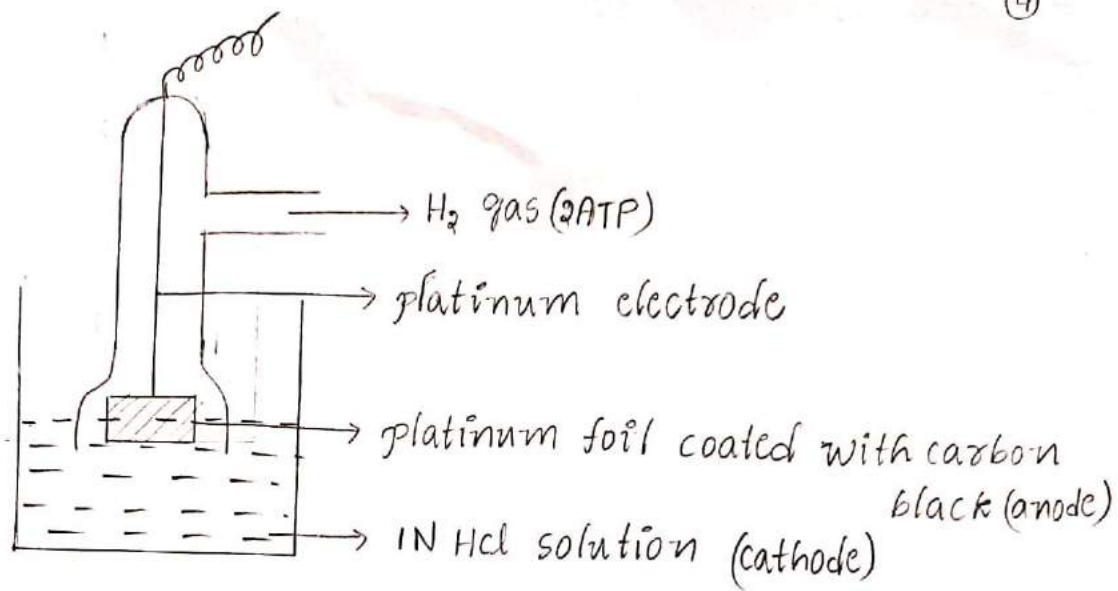 ④
H₂ gas (2ATP)
platinum electrode
platinum foil coated with carbon
black (anode)
1N Hcl solution (cathode)